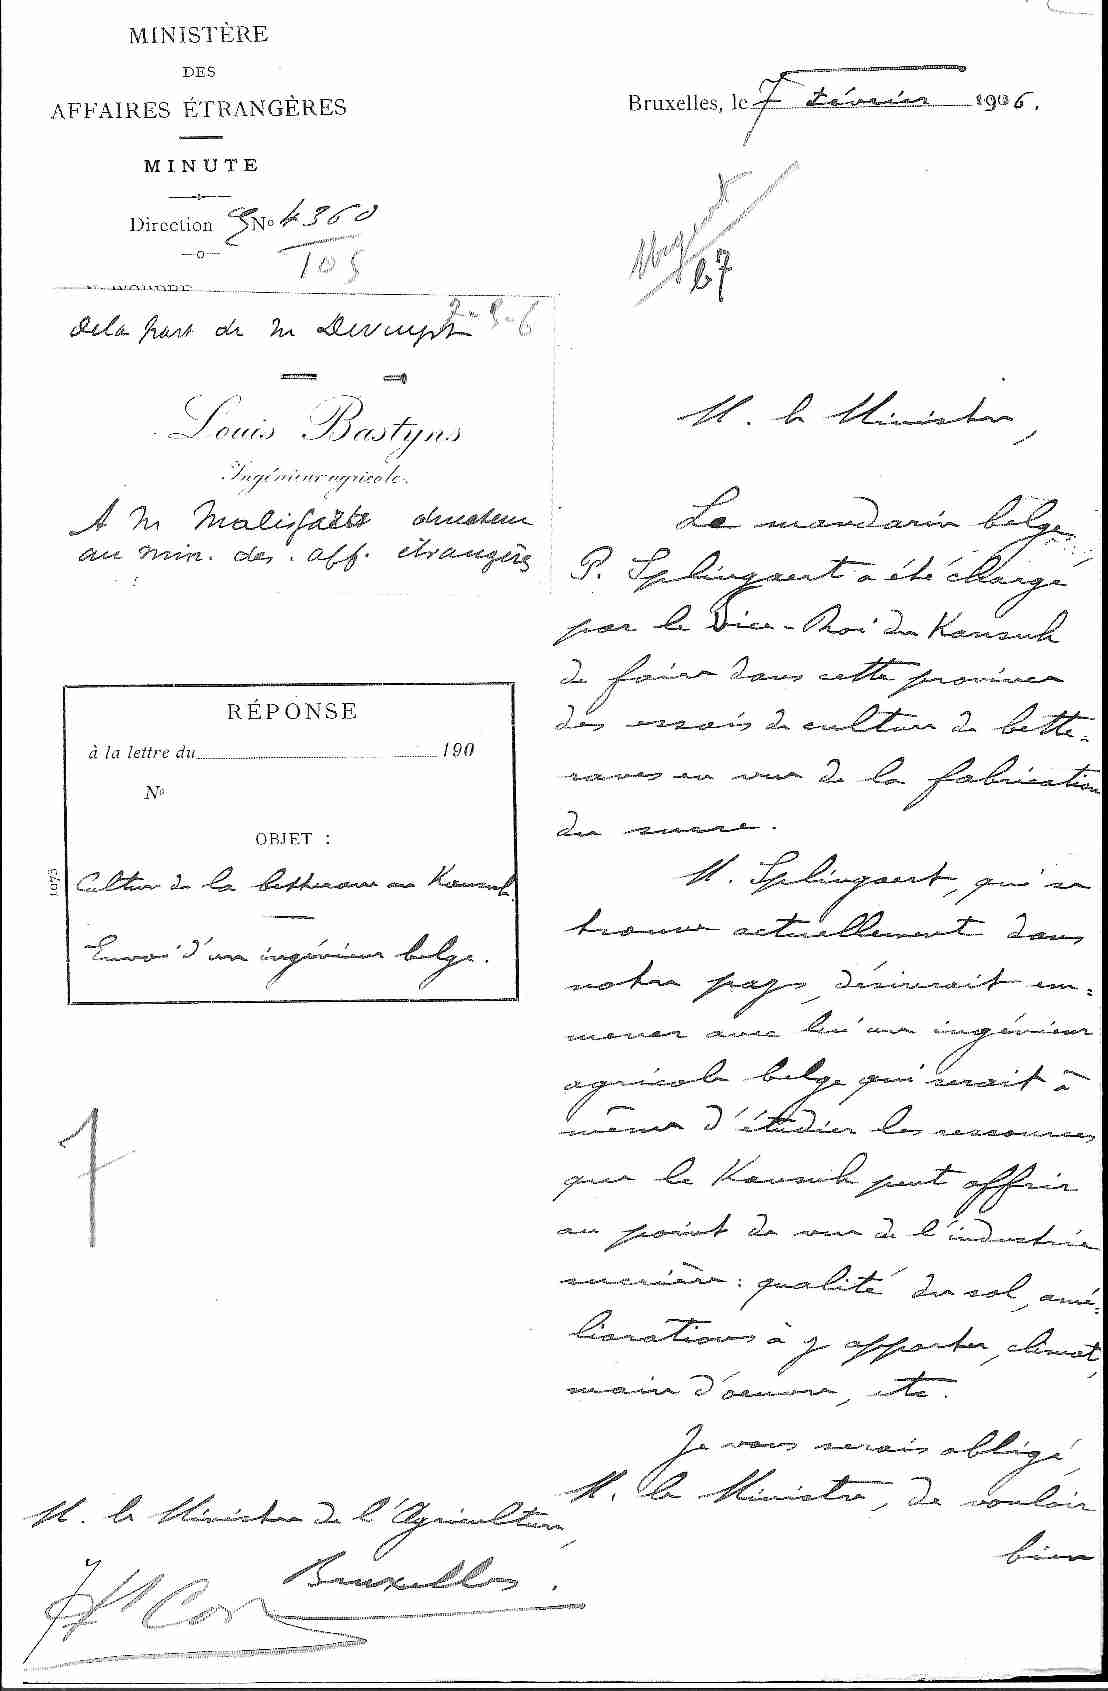 MINISTÈRE
DES
AFFAIRES ÉTRANGÈRES
MINUTE
Direction No 4360
105
Bruxelles, le 7 février 1906.
Urgent
b7
2-3-6
De la part de M
Louis Bastyns
Ingénieur agricole.
A M Malisfatte directeur
au Min. des. aff. étrangères
RÉPONSE
à la lettre du 190
No
OBJET :
1073
Culture de la betterave au Kansuh.
Envoi d'un ingénieur belge.
M. le Ministre,
Le mandarin belge
P. Splingaert a été chargé
par le Vice-Roi du Kansuh
de faire dans cette province
des essais de culture de bette-
raves en vue de la fabrication
du sucre.
M. Splingaert, qui se
trouve actuellement dans
notre pays, désirerait em-
mener avec lui un ingénieur
agricole belge qui serait à
même d'étudier les ressources
que le Kansuh peut offrir
au point de vue de l'industrie
sucrière : qualité du sol, amé-
liorations à y apporter, climat,
main d'oeuvre, etc.
Je vous serais obligé,
M. le Ministre, de vouloir
bien
M. le Ministre de l'Agriculture,
Bruxelles.